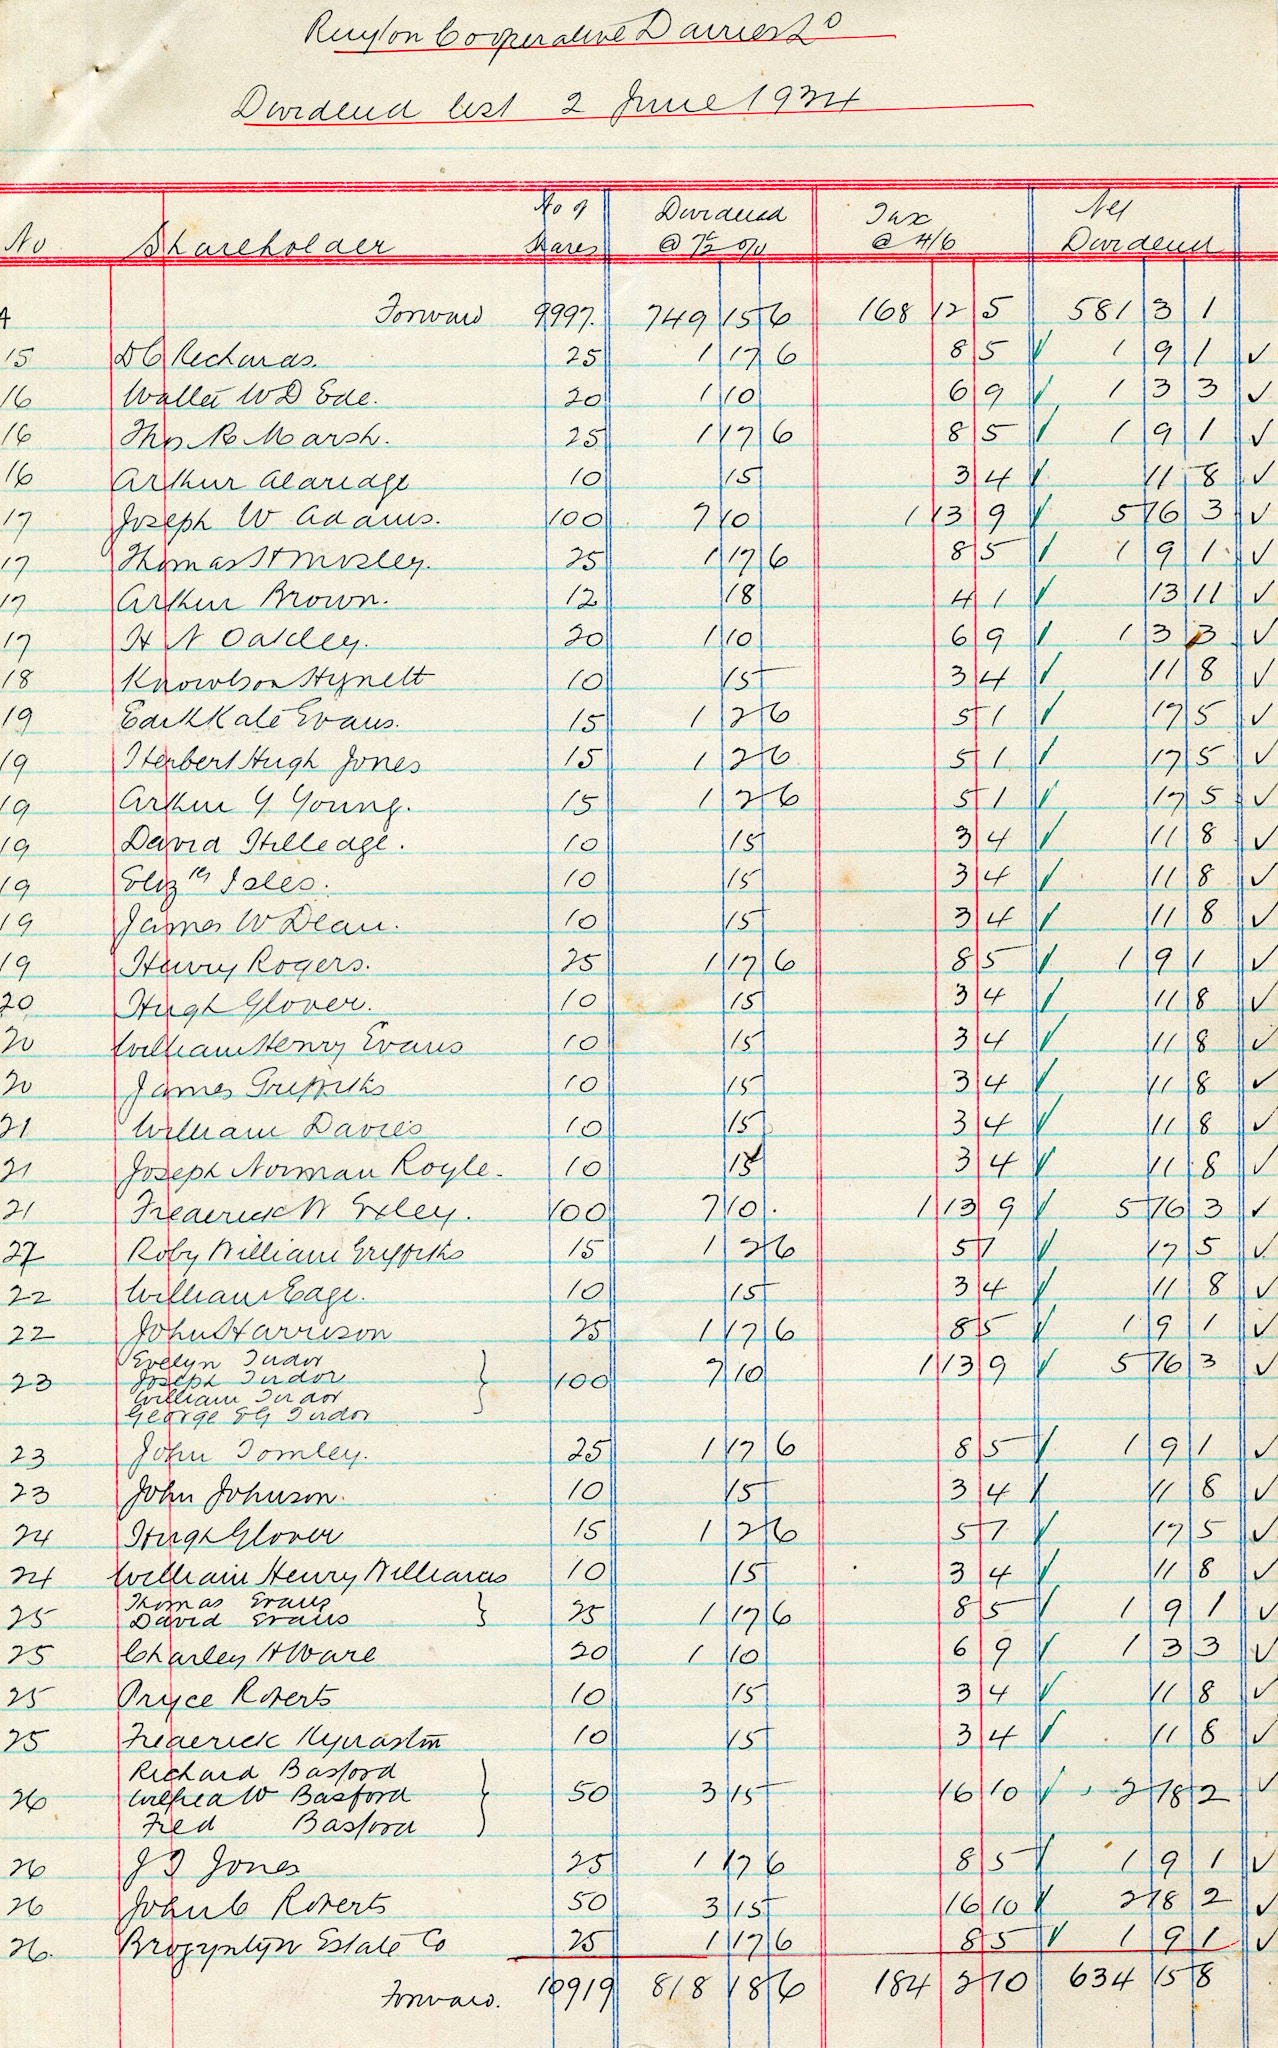 Ruyton Cooperative Dairies Ld
Dividend list 2 June 1934
No Shareholder No of Shares Dividend @ 7½ % Tax @ 4/6 Net Dividend
4 Forward 9997. 749 15 6 168 12 5 581 3 1
15 D C Richards. 25 1 17 6 8 5 ✓ 1 9 1 ✓
16 Walter W D Ede. 20 1 10 6 9 ✓ 1 3 3 ✓
16 Thos R Marsh. 25 1 17 6 8 5 ✓ 1 9 1 ✓
16 Arthur Aldridge 10 15 3 4 ✓ 11 8 ✓
17 Joseph W Adams. 100 7 10 1 13 9 ✓ 5 16 3 ✓
17 Thomas H Mosley. 25 1 17 6 8 5 ✓ 1 9 1 ✓
17 Arthur Brown. 12 18 4 1 ✓ 13 11 ✓
17 H N Oakley. 20 1 10 6 9 ✓ 1 3 3 ✓
18 Knowlson Hynett 10 15 3 4 ✓ 11 8 ✓
19 Edith Kate Evans. 15 1 2 6 5 1 ✓ 17 5 ✓
19 Herbert Hugh Jones 15 1 2 6 5 1 ✓ 17 5 ✓
19 Arthur G Young. 15 1 2 6 5 1 ✓ 17 5 ✓
19 David Hilledge. 10 15 3 4 ✓ 11 8 ✓
19 Elizth Isles. 10 15 3 4 ✓ 11 8 ✓
19 James W Dean. 10 15 3 4 ✓ 11 8 ✓
19 Henry Rogers. 25 1 17 6 8 5 ✓ 1 9 1 ✓
20 Hugh Glover. 10 15 3 4 ✓ 11 8 ✓
20 William Henry Evans 10 15 3 4 ✓ 11 8 ✓
20 James Griffiths 10 15 3 4 ✓ 11 8 ✓
21 William Davies 10 15 3 4 ✓ 11 8 ✓
21 Joseph Norman Royle. 10 15 3 4 ✓ 11 8 ✓
21 Frederick W Exley. 100 7 10. 1 13 9 ✓ 5 16 3 ✓
22 Roby William Griffiths 15 1 2 6 5 1 ✓ 17 5 ✓
22 William Edge. 10 15 3 4 ✓ 11 8 ✓
22 John Harrison 25 1 17 6 8 5 ✓ 1 9 1 ✓
Evelyn Tudor
23 Joseph Tudor 100 7 10 1 13 9 ✓ 5 16 3 ✓
William Tudor
George E G Tudor
23 John Tomley. 25 1 17 6 8 5 ✓ 1 9 1 ✓
23 John Johnson. 10 15 3 4 ✓ 11 8 ✓
24 Hugh Glover 15 1 2 6 5 1 ✓ 17 5 ✓
24 William Henry Williams 10 15 3 4 ✓ 11 8 ✓
Thomas Evans
25 David Evans 25 1 17 6 8 5 ✓ 1 9 1 ✓
25 Charley H Ware 20 1 10 6 9 ✓ 1 3 3 ✓
25 Pryce Roberts 10 15 3 4 ✓ 11 8 ✓
25 Frederick Kynaston 10 15 3 4 ✓ 11 8 ✓
Richard Basford
26 Wilfred W Basford 50 3 15 16 10 ✓ 2 18 2 ✓
Fred Basford
26 J I Jones 25 1 17 6 8 5 ✓ 1 9 1 ✓
26 John C Roberts 50 3 15 16 10 ✓ 2 18 2 ✓
26. Brogyntyn Estate Co 25 1 17 6 8 5 ✓ 1 9 1 ✓
Forward. 10919 818 18 6 184 2 10 634 15 8